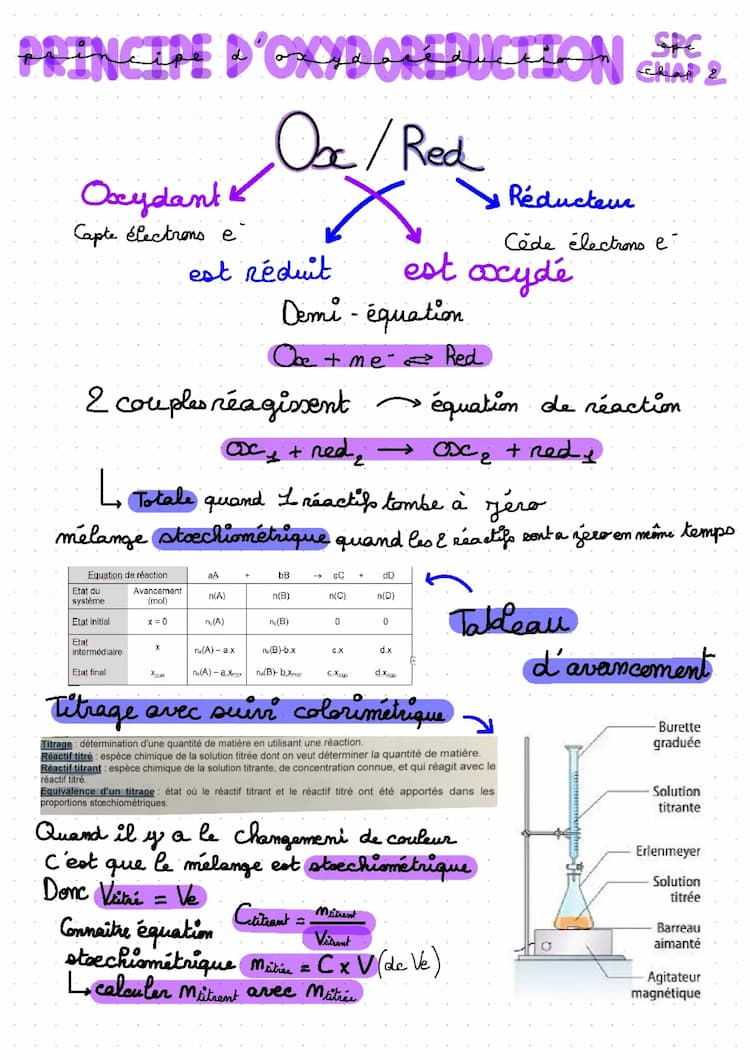 PRINCIPE D'OXYDORÉDUCTION
principe d'oxydoréduction
SPC
spc
CHAP 2
chap 2
Ox / Red
Oxydant
Réducteur
Capte électrons e⁻
Cède électrons e⁻
est réduit
est oxydé
Demi - équation
Ox + n e⁻ ⇌ Red
2 couples réagissent → équation de réaction
ox₁ + red₂ → ox₂ + red₁
↳ Totale quand 1 réactifs tombe à zéro
mélange stœchiométrique quand les 2 réactifs sont a zero en même temps
Equation de réaction aA + bB → cC + dD
Etat du système Avancement (mol) n(A) n(B) n(C) n(D)
Etat initial x = 0 nᵢ(A) nᵢ(B) 0 0
Etat intermédiaire x nᵢ(A) – a.x nᵢ(B)-b.x c.x d.x
Etat final xₘₐₓ nᵢ(A) – a.xₘₐₓ nᵢ(B)- b.xₘₐₓ c.xₘₐₓ d.xₘₐₓ
Tableau
d'avancement
Titrage avec suivi colorimétrique
Titrage : détermination d'une quantité de matière en utilisant une réaction.
Réactif titré : espèce chimique de la solution titrée dont on veut déterminer la quantité de matière.
Réactif titrant : espèce chimique de la solution titrante, de concentration connue, et qui réagit avec le
réactif titré.
Equivalence d'un titrage : état où le réactif titrant et le réactif titré ont été apportés dans les
proportions stœchiométriques.
Quand il y a le changement de couleur
C'est que le mélange est stœchiométrique
Donc Vtitré = Ve
Connaitre équation
stœchiométrique
Ctitrant = ntitrant / Vtitrant
ntitrée = C x V (de Ve)
↳ calculer ntitrant avec ntitrée
Burette
graduée
Solution
titrante
Erlenmeyer
Solution
titrée
Barreau
aimanté
Agitateur
magnétique